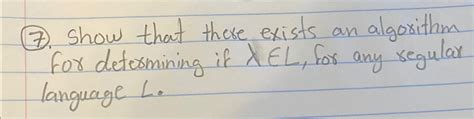 7. Show that there exists an algorithm
for determining if λ∈L, for any regular
language L.